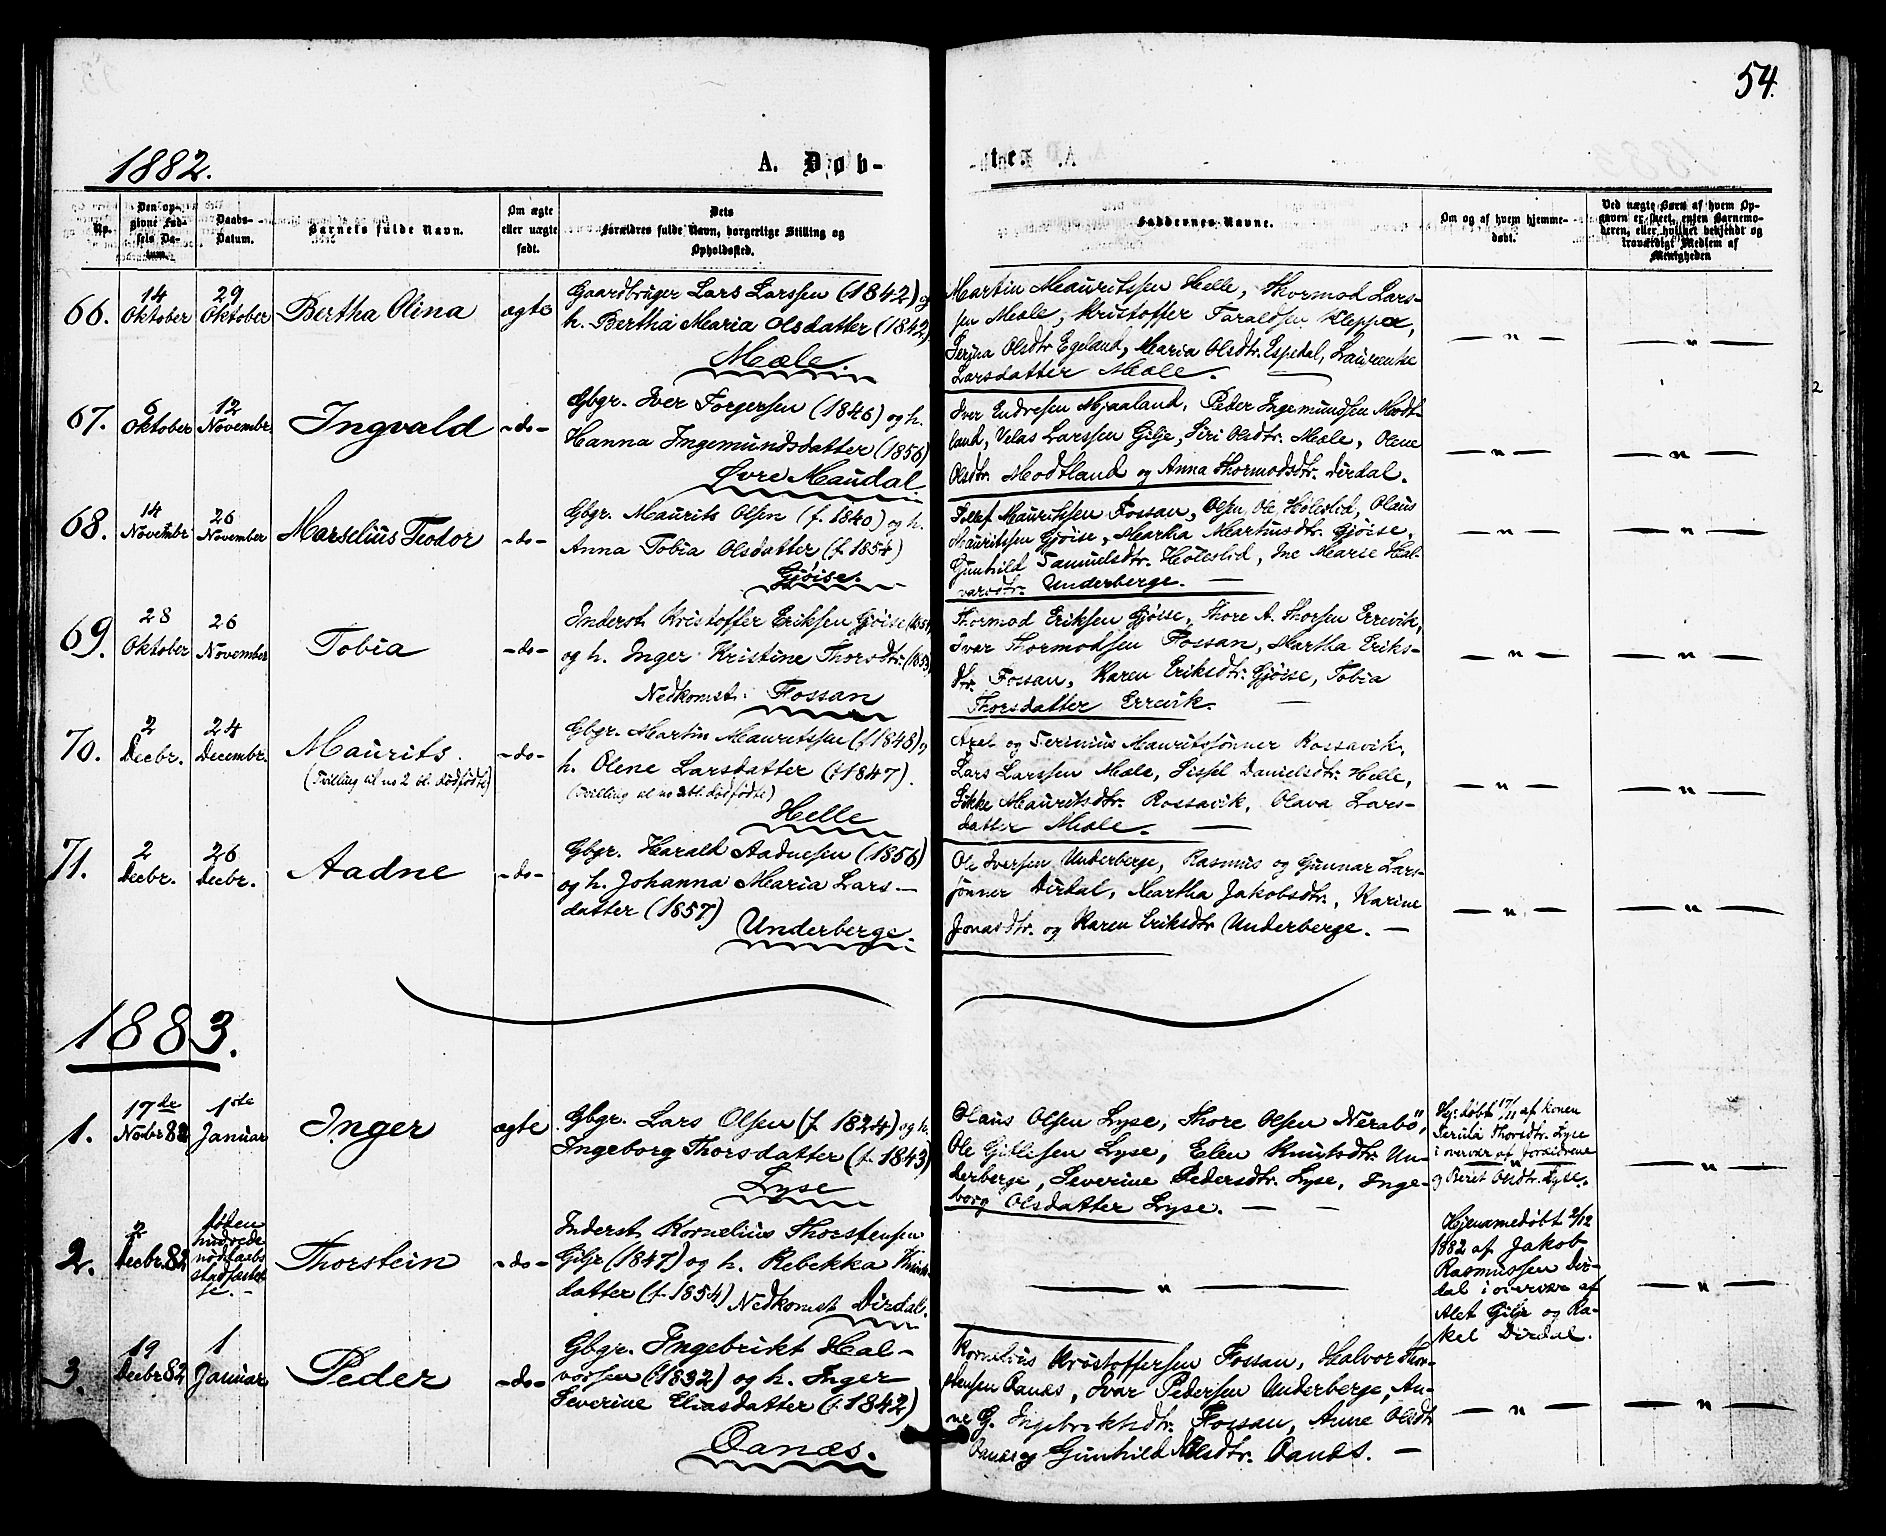 54.
1882.
A. Døb-
-te.
No.
Den op-
givne Fød-
sels Da-
tum.
Daabs-
Datum.
Barnets fulde Navn.
Om ægte
eller uægte
født.
Dets
Forældres fulde Navn, borgerlige Stilling og
Opholdssted.
Faddernes Navne.
Om og af hvem hjemme-
døbt.
Ved uægte Børn af hvem Op-
gaven er skeet, enten Barnemo-
deren, eller hvilket bekjendt og
troværdigt Medlem af
Menigheden
66.
14
Oktober
29
Oktober
Bertha Olina
ægte
Gaardbruger Lars Larssen (1842) og
h. Bertha Maria Olsdatter (1842)
Mæle.
Martin Mauritssen Helle, Thormod Lars-
sen Mæle, Kristoffer Taraldsen Kleppa,
Serina Olsdtr Egeland, Maria Olsdtr. Espedal, Laurentse
Larsdatter Mæle.
— " —
— " —
67.
6
Oktober
12
Novembr.
Ingvald
- do -
Gbgr. Iver Torgersen (1846) og h.
Hanna Ingemundsdatter (1856)
Øvre Maudal.
Iver Endresen Mjaaland, Peder Ingemundsen Modt-
land, Velas Larssen Gilje, Siri Olsdtr. Mæle, Olene
Olsdtr. Modtland og Anna Thormodsdtr. Dirdal.
— " —
— " —
68.
14
Novembr
26
November
Marselius Teodor
- do -
Gbgr. Maurits Olsen (f. 1840) og h.
Anna Tobia Olsdatter (f. 1854)
Gjøise.
Tollef Mauritssen Fossan, Olsen Ole Høleslid, Olaus
Mauritssen Gjøise, Martha Martinsdtr. Gjøise,
Gunhild Samuelsdtr. Høleslid, Ine Marie Hal-
varsdtr. Underberge. —
— " —
— " —
69.
28
Oktober
26
November
Tobia
- do -
Inderst Kristoffer Eriksen Gjøise
og h. Inger Kristine Thorsdtr.
Nedkomst: Fossan
Thormod Eriksen Gjøise, Thore A. Thorsen Errevik,
Ivar Thormodsen Fossan, Martha Eriks-
dtr. Fossan, Karen Eriksdtr. Gjøise, Tobia
Thorsdatter Errevik. —
— " —
— " —
70.
2
Decbr.
24
Decembr.
Maurits.
(Tvilling til no 2 bl. dødfødte)
- do -
Gbgr. Martin Mauritssen (f 1848) og
h. Olene Larsdatter (f 1847).
(Tvilling til no 2 bl. dødfødte)
Helle
Axel og Serinius Mauritssønner Rossavik,
Lars Larssen Mæle, Sissel Danielsdtr. Helle,
Sikke Mauritsdtr. Rossavik, Olava Lars-
datter Mæle. —
— " —
— " —
71.
2
Decbr.
26
Decbr.
Aadne
- do -
Gbgr. Harald Aadnesen (1856)
og h. Johanna Maria Lars-
datter (1857)
Underberge.
Ole Iversen Underberge, Rasmus og Gunnar Lars-
sønner Dirdal, Martha Jakobsdtr., Karine
Jonasdtr. og Karen Eriksdtr Underberge. —
— " —
— " —
1883.
1.
17de
Novbr 82
1ste
Januar
Inger
ægte
Gbgr. Lars Olsen (f. 1824) og h.
Ingeborg Thorsdatter (f. 1843)
Lyse
Olaus Olsen Lyse, Thore Olsen Nerabø,
Ole Gitlesen Lyse, Elen Knutsdtr. Un-
derberge, Severine Pedersdtr. Lyse, Inge-
borg Olsdatter Lyse. — —
Hj: døbt 17/11 af konen
Serina Thorsdtr. Lyse
i overvær af forældrene
og Beret Olsdtr. Lyse.
— " —
2.
2
Decbr. 82
føden
nøddaabs
stadfæstel-
se. -
Thorstein
- do -
Inderst Kornelius Thorstensen
Gilje (1847) og h. Rebekka
datter (f. 1854) Nedkomst Dirdal.
— " —
Hjemmedøbt 2/12
1882 af Jakob
Rasmussen Dir-
dal i overvær af
Alet Gilje og Ra-
kel Dirdal.
— " —
3.
19
Decbr 82
1
Januar
Peder
- do -
Gbgr. Ingebrikt Hal-
vorsen (1832) og h. Inger
Severine Eliasdatter (f. 1842)
Oanæs.
Kornelius Kristoffersen Fossan, Halvor Thor-
stensen Oanæs, Ivar Pedersen Underberge, An-
ne G. Ingebriktsdtr. Fossan, Anne Olsdtr
Oanæs og Gunhild Olsdtr. Oanæs. —
— " —
— " —